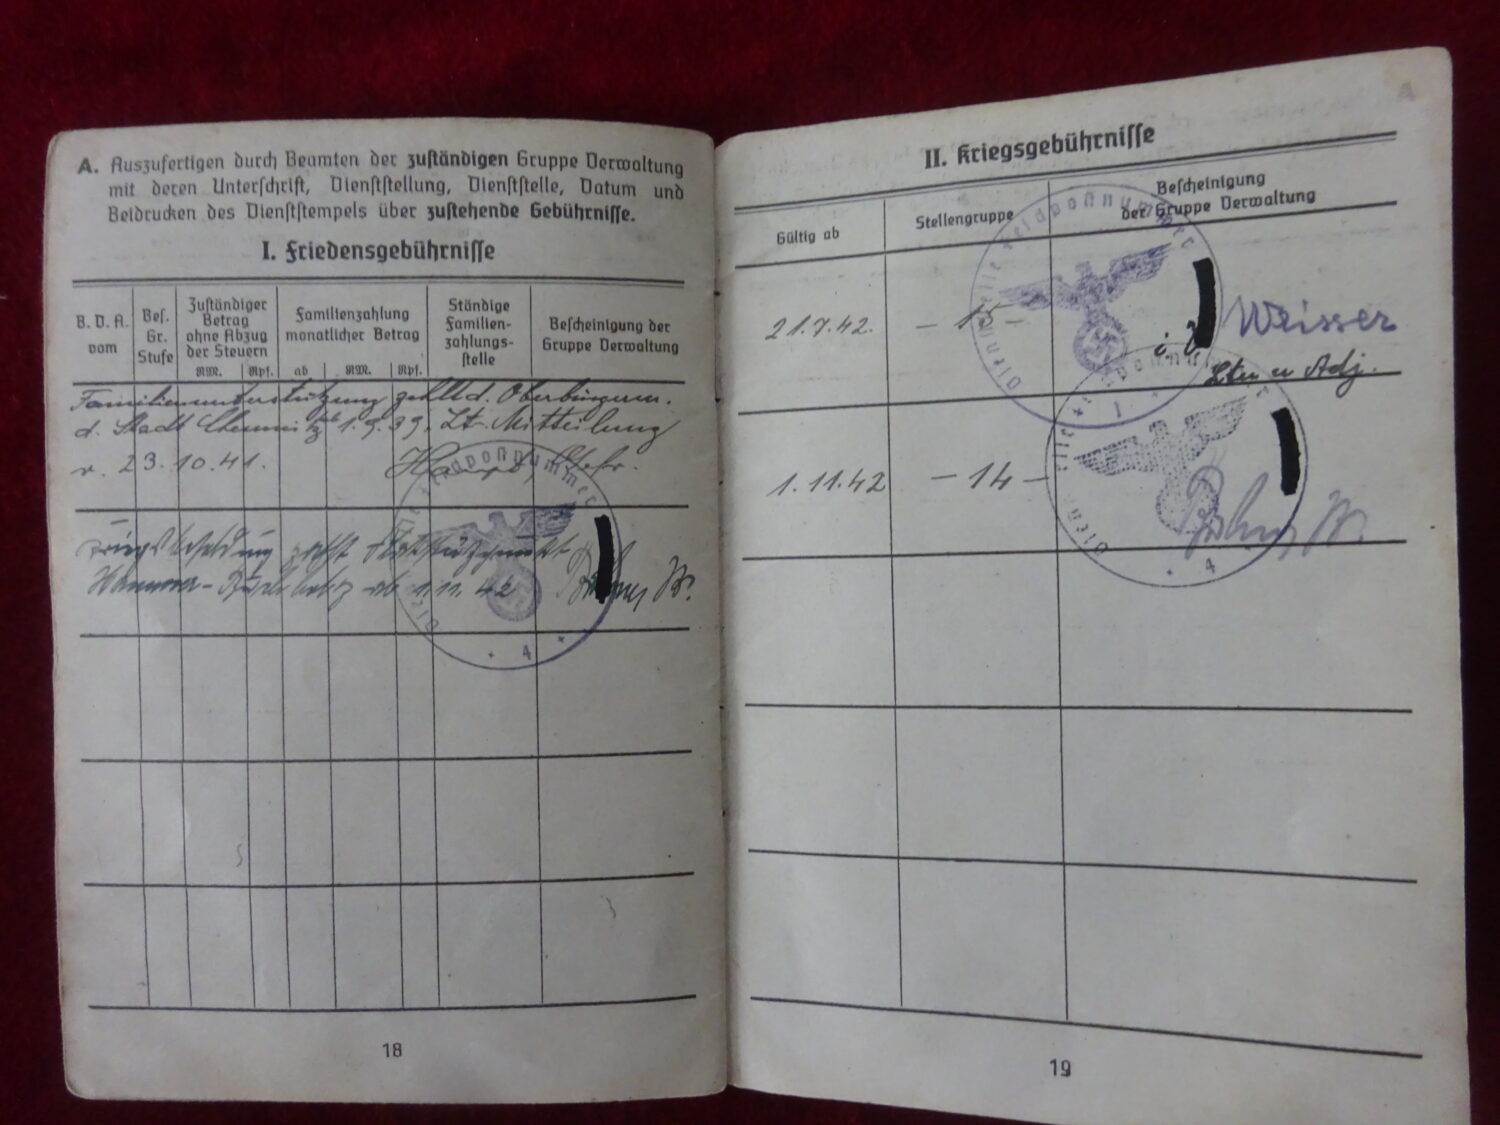 A. Auszufertigen durch Beamten der zuständigen Gruppe Verwaltung
mit deren Unterschrift, Dienststellung, Dienststelle, Datum und
Beidrucken des Dienststempels über zustehende Gebührnisse.
I. Friedensgebührnisse
B. D. A.
vom
Bes.
Gr.
Stufe
Zuständiger
Betrag
ohne Abzug
der Steuern
RM. Rpf.
Familienzahlung
monatlicher Betrag
ab RM. Rpf.
Ständige
Familien-
zahlungs-
stelle
Bescheinigung der
Gruppe Verwaltung
Familienunterstützung Oberbürgerm.
d. Stadt Chemnitz 1.9.39. Lt. Mitteilung
v. 23.10.41.
Feldpostnummer
ab 1.11.42
4
18
II. Kriegsgebührnisse
Gültig ab
Stellengruppe
Bescheinigung
der Gruppe Verwaltung
Dienststelle Feldpostnummer
21.7.42. – 15 – Weisser
Ltn u Adj.
1
1.11.42 – 14 –
4
19